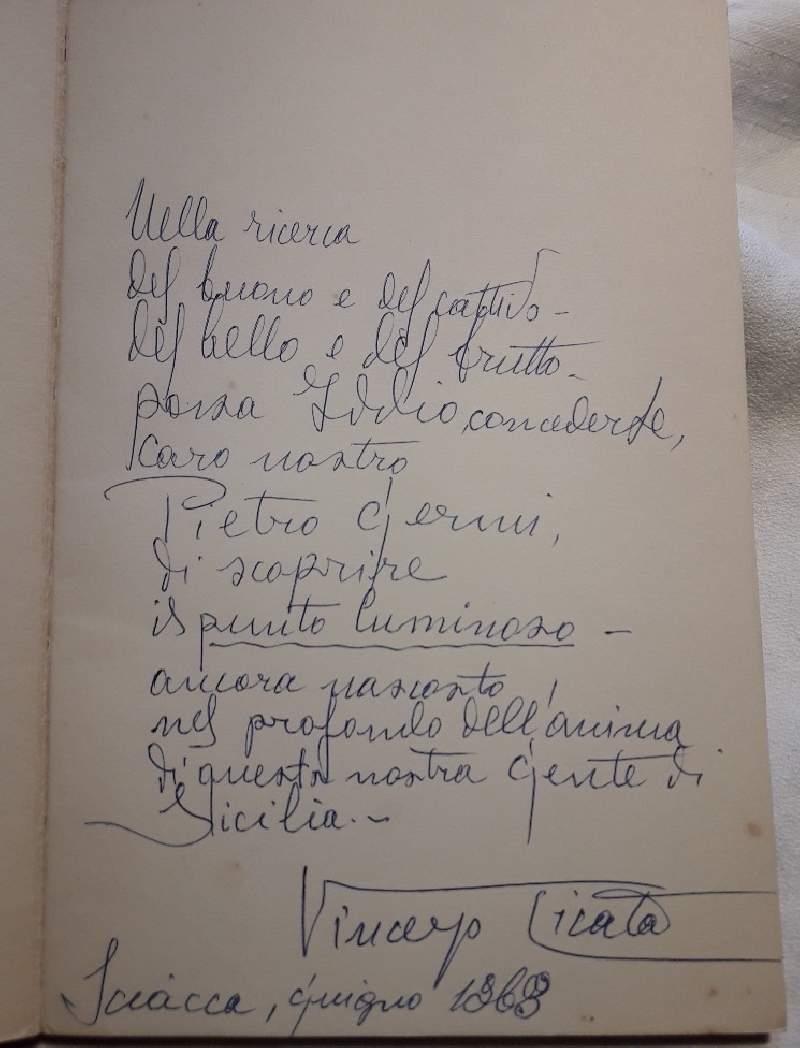 Nella ricerca
del buono e del cattivo -
del bello e del brutto -
possa Iddio, concederte,
caro nostro
Pietro Germi,
di scoprire
il punto luminoso -
ancora nascosto
nel profondo dell'anima
di questa nostra gente di
Sicilia. -
Vincenzo Licata
Sciacca, giugno 1963